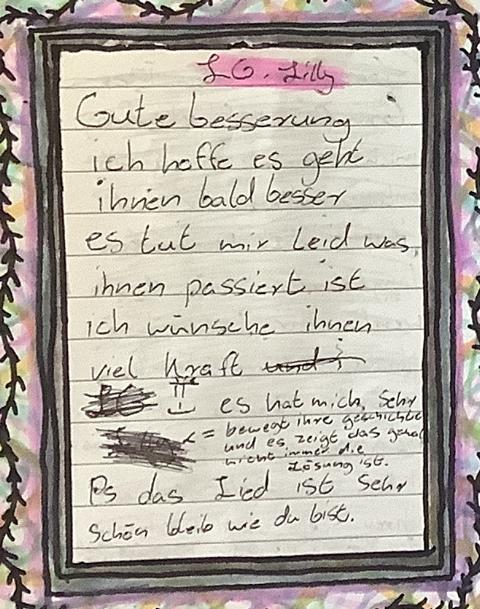 LG. Lilly
Gute besserung
ich hoffe es geht
ihnen bald besser
es tut mir Leid was
ihnen passiert ist
ich wünsche ihnen
viel Kraft und
es hat mich, Sehr
= bewegt ihre geschichte
und es zeigt das
nicht immer die
Lösung ist.
Ps das Lied ist Sehr
schön bleib wie du bist.